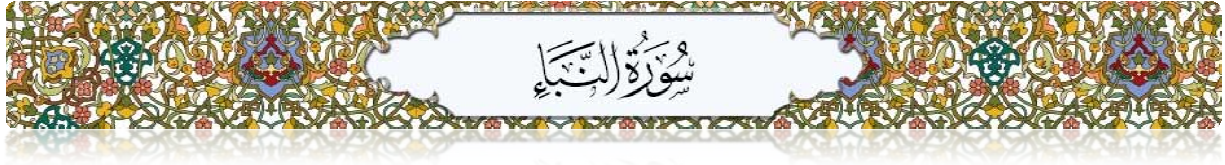 سُورَةُ النَّبَإِ